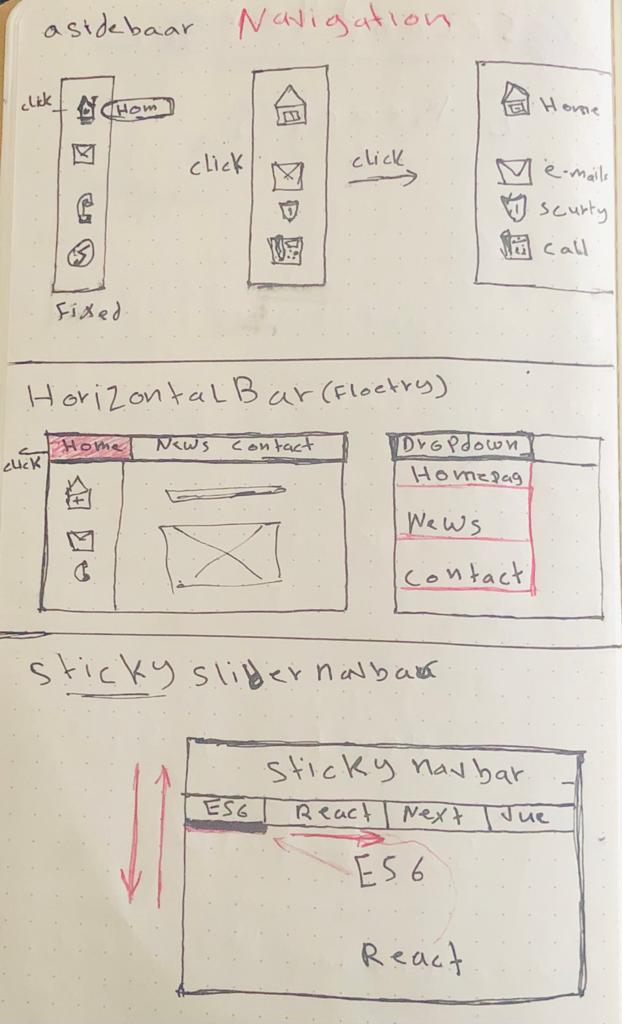 asidebaar Navigation
click
Hom
Fixed
click
click
Home
e-mails
scurty
call
Horizontal Bar (Floctry)
click
Home News contact
Dropdown
Homepag
News
contact
Sticky slider navbar
sticky navbar
ES6 React Next Vue
ES6
React